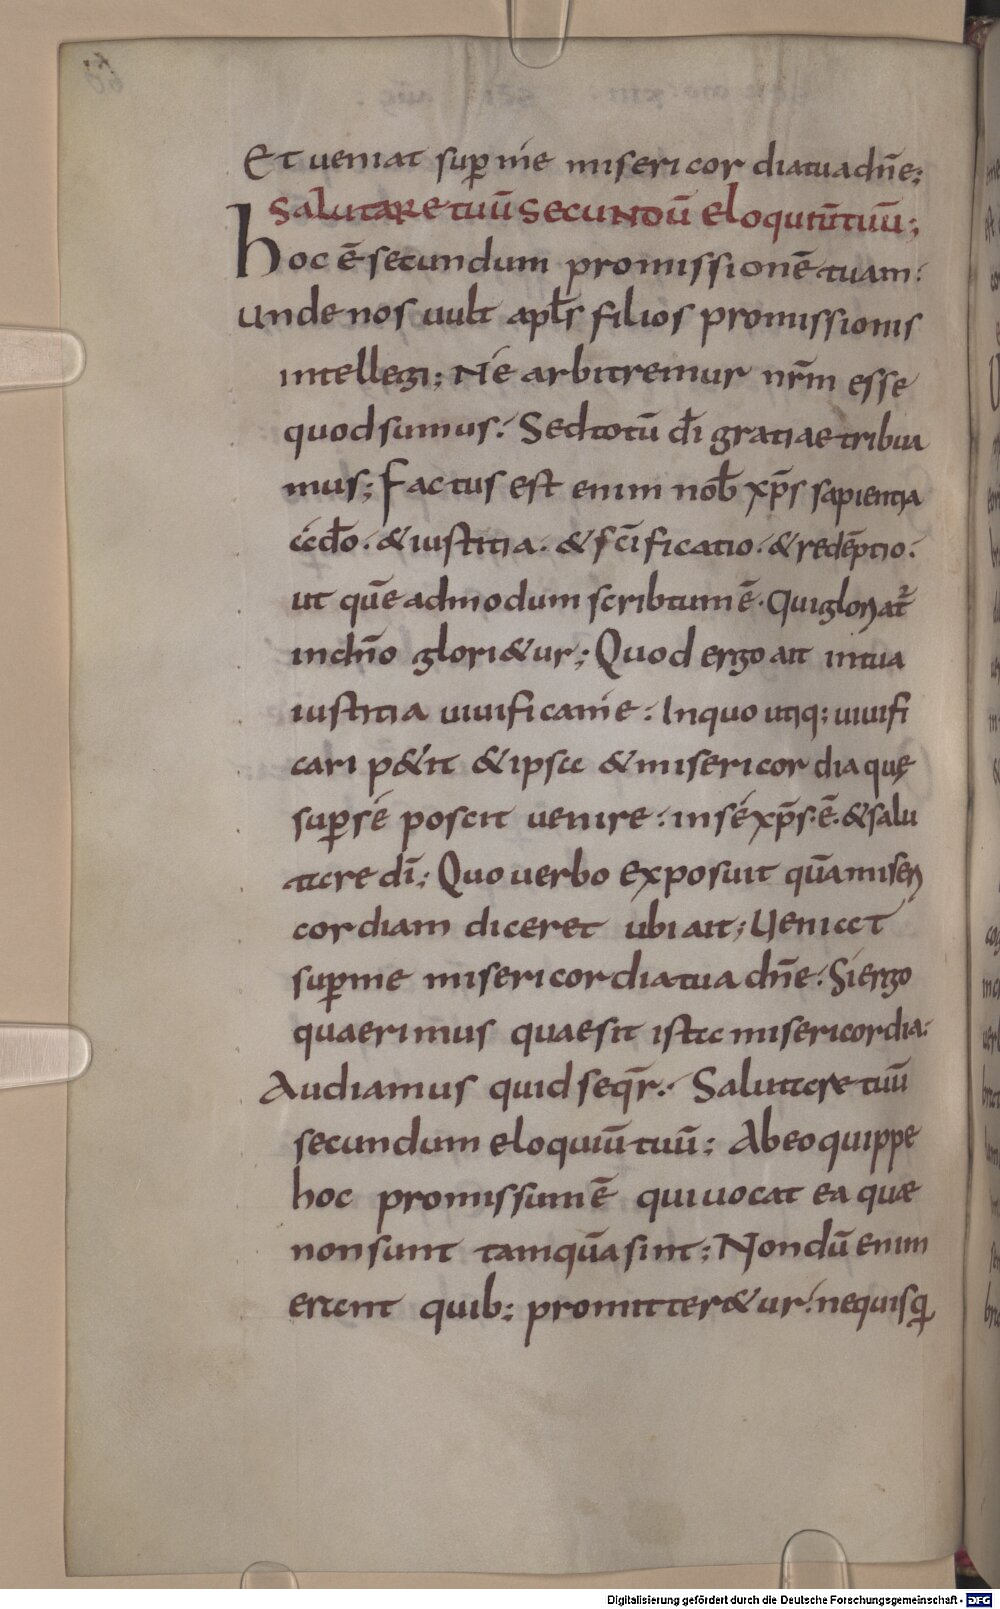 Et ueniat sup me misericordia tua dn̄e;
Salutare tuū secundū eloquiū tuū;
hoc ē secundum promissionē tuam.
Unde nos uult apl̄s filios promissionis
intellegi; Ne arbitremur nr̄m esse
quod sumus. Sed totū dī gratiae tribua
mus; Factus est enim nob̄ xp̄s sapientia
a dō. & iustitia. & sc̄ificatio. & redēptio.
ut quēadmodum scribtum ē. Qui gloriat̄
in dn̄o glori&ur; Quod ergo ait in tua
iustitia uiuifica me. In quo utiq; uiuifi
cari p&it & ipsa & misericordia quę
sup se poscit uenire. in se xp̄s ē. & salu
tare dī; Quo uerbo exposuit quā miseri
cordiam diceret ubi ait; Ueniat
sup me misericordia tua dn̄e. Si ergo
quaerimus quae sit ista misericordia.
Audiamus quid seqr̄. Salutare tuū
secundum eloquiū tuū; Ab eo quippe
hoc promissum ē qui uocat ea quae
non sunt tamquā sint; Nondū enim
erant quib; promitter&ur. ne quisq̄
Digitalisierung gefördert durch die Deutsche Forschungsgemeinschaft - DFG